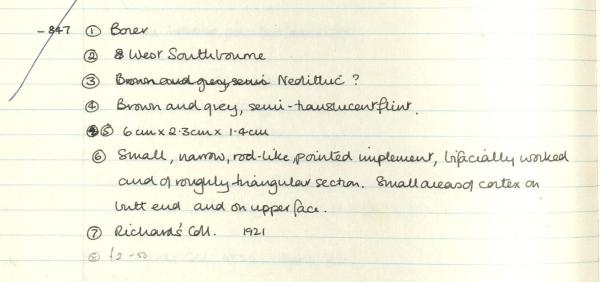 -847 ① Borer
② West Southbourne
③ Brown and grey, semi Neolithic ?
④ Brown and grey, semi-translucent flint.
⑤ 6cm x 2.3cm x 1.4cm
⑥ Small, narrow, rod-like, pointed implement, bifacially worked
and of roughly triangular section. Small areas of cortex on
butt end and on upper face.
⑦ Richards' Coll. 1921
⑧ £2-50